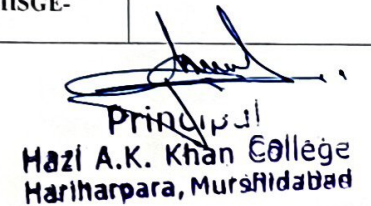 HSGE-
Principal
Hazi A.K. Khan College
Hariharpara, Murshidabad